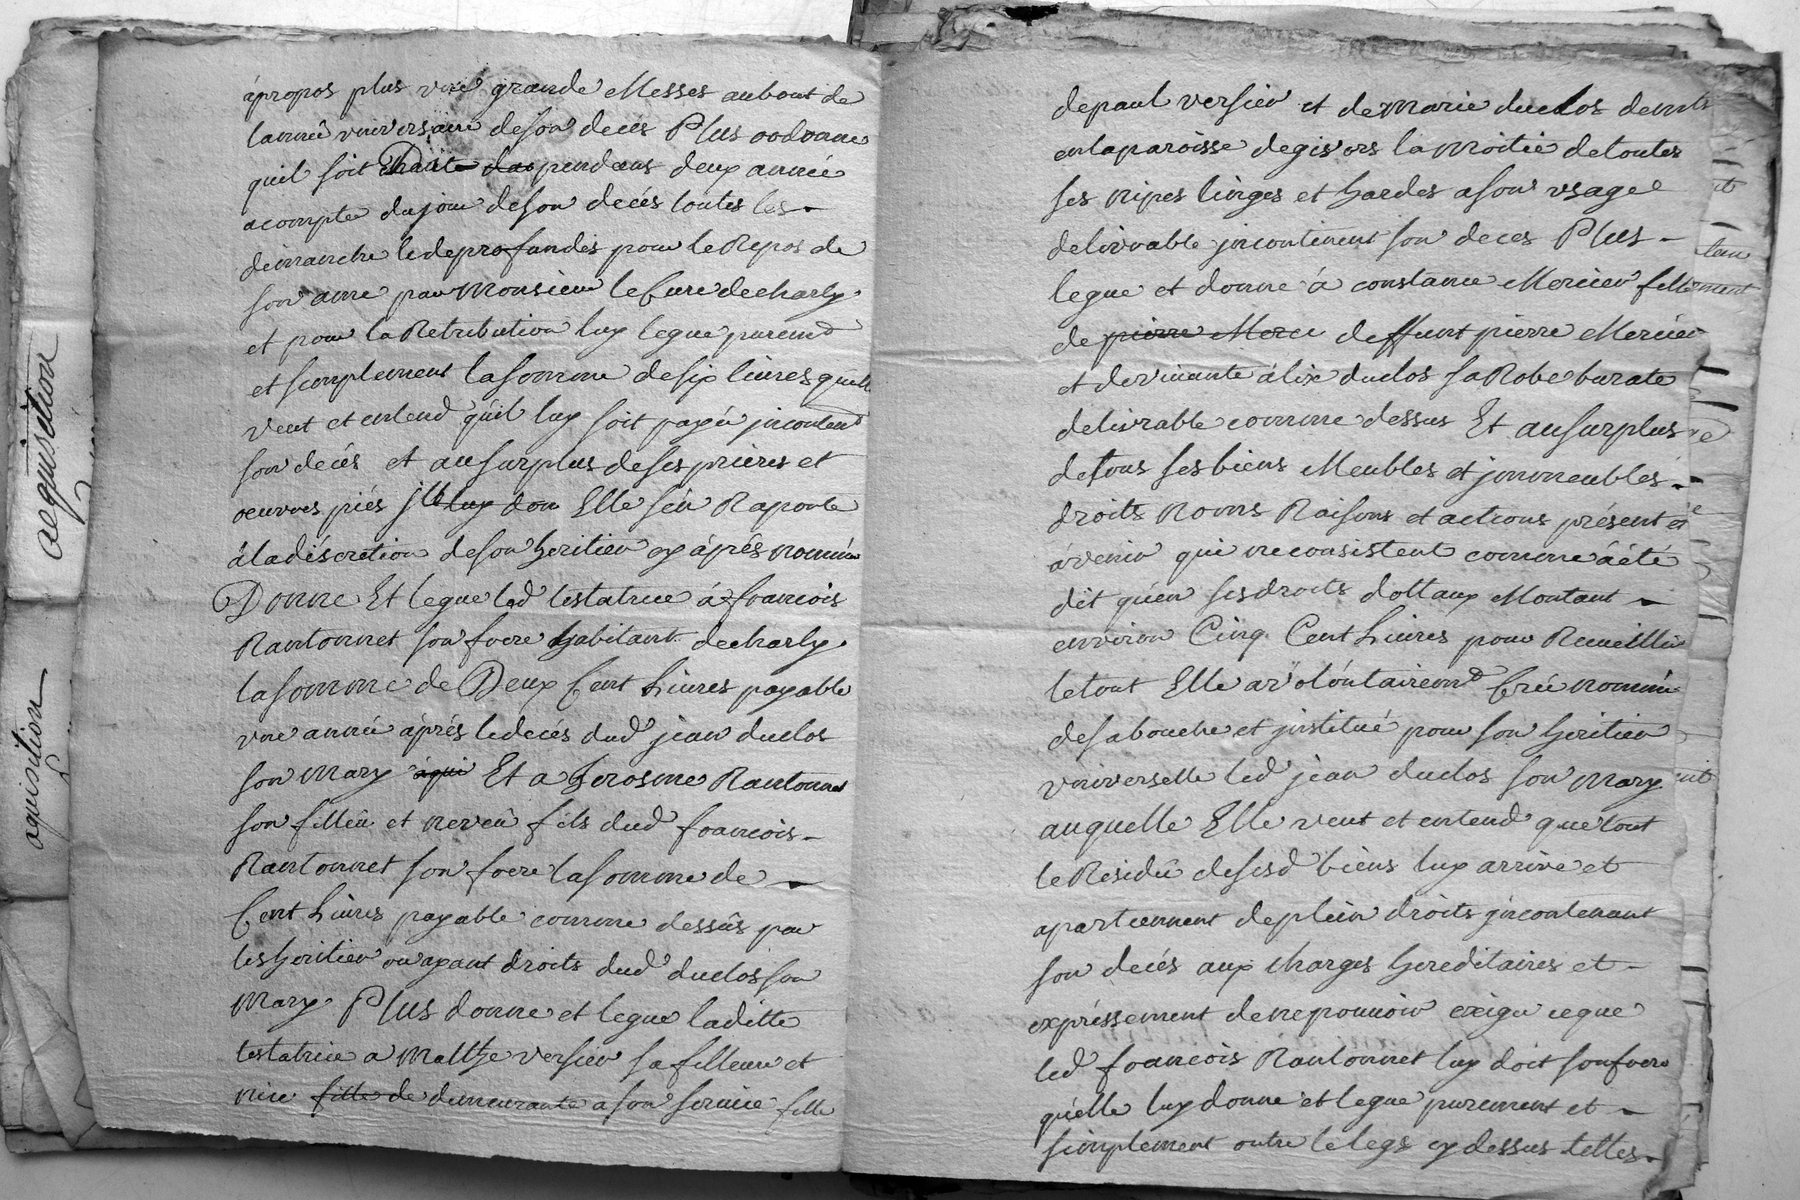 apropos plus une grande Messes aubout de
lannee universaire deson deces Plus oodonne
quil soit chanté das pendans deux anneé
acompter dujour deson decés toutes les
dimanche ledeprofundis pour le Repos de
son ame par Monsieur le Cure decharly
et pour la Retribution luy legue purem.t
et simplement la somme desix livres quelle
veut et entend quil luy soit payé jncontent
son decés et ausurplus deses prieres et
oeuvres piés jl luy don Elle sén Raporte
áladiscretion deson heritier cy áprés nommé
Donne Et legue lad testatrice á francois
Rantonnet son frere habitant decharly
la somme de Deux Cent Livres payable
une année áprés ledecés dud jean duclos
son mary aqui Et a Jerosme Rantonnet
son filleu et neveu fils dud francois
Rantonnet son frere lasomme de
Cent Livres payable comme dessus par
lesheritier ou ayant droits dud duclos son
mary. Plus donne et legue laditte
testatrice a Matthe versier sa filleure et
niece fille de demeurante a son service fille
depaul versier et demarie duclos demts
enlaparoisse degivors la moitié detoutes
ses nipes linges et hardes ason usage
delivrable jncontinent son deces Plus
legue et donne á constance Mercier fille
de pierre Merci deffunt pierre Mercier
et devivante álix duclos sa Robe burate
delivrable comme dessus Et ausurplus
detous ses biens Meubles et jmmeubles
droits noms Raisons et actions présent et
ávenir qui ne consistent comme áeté
dit quén ses droits dottaux Montant
environ Cinq Cent Livres pour Recueillir
letout Elle a volontairem.t Creé nommé
desabouche et jnstitué pour son heritier
universelle led jean duclos son mary
auquelle Elle veut et entend que tout
le Residu desesd biens luy arrive et
apartiennent deplein droits jncontenant
son decés aux charges hereditaires et
expréssement denepouvoir exiger ceque
led francois Rantonnet luy doit sonfrere
quélle luy donne et legue purement et
simplement outre le legs cy dessus telles
aequisition
aquisition